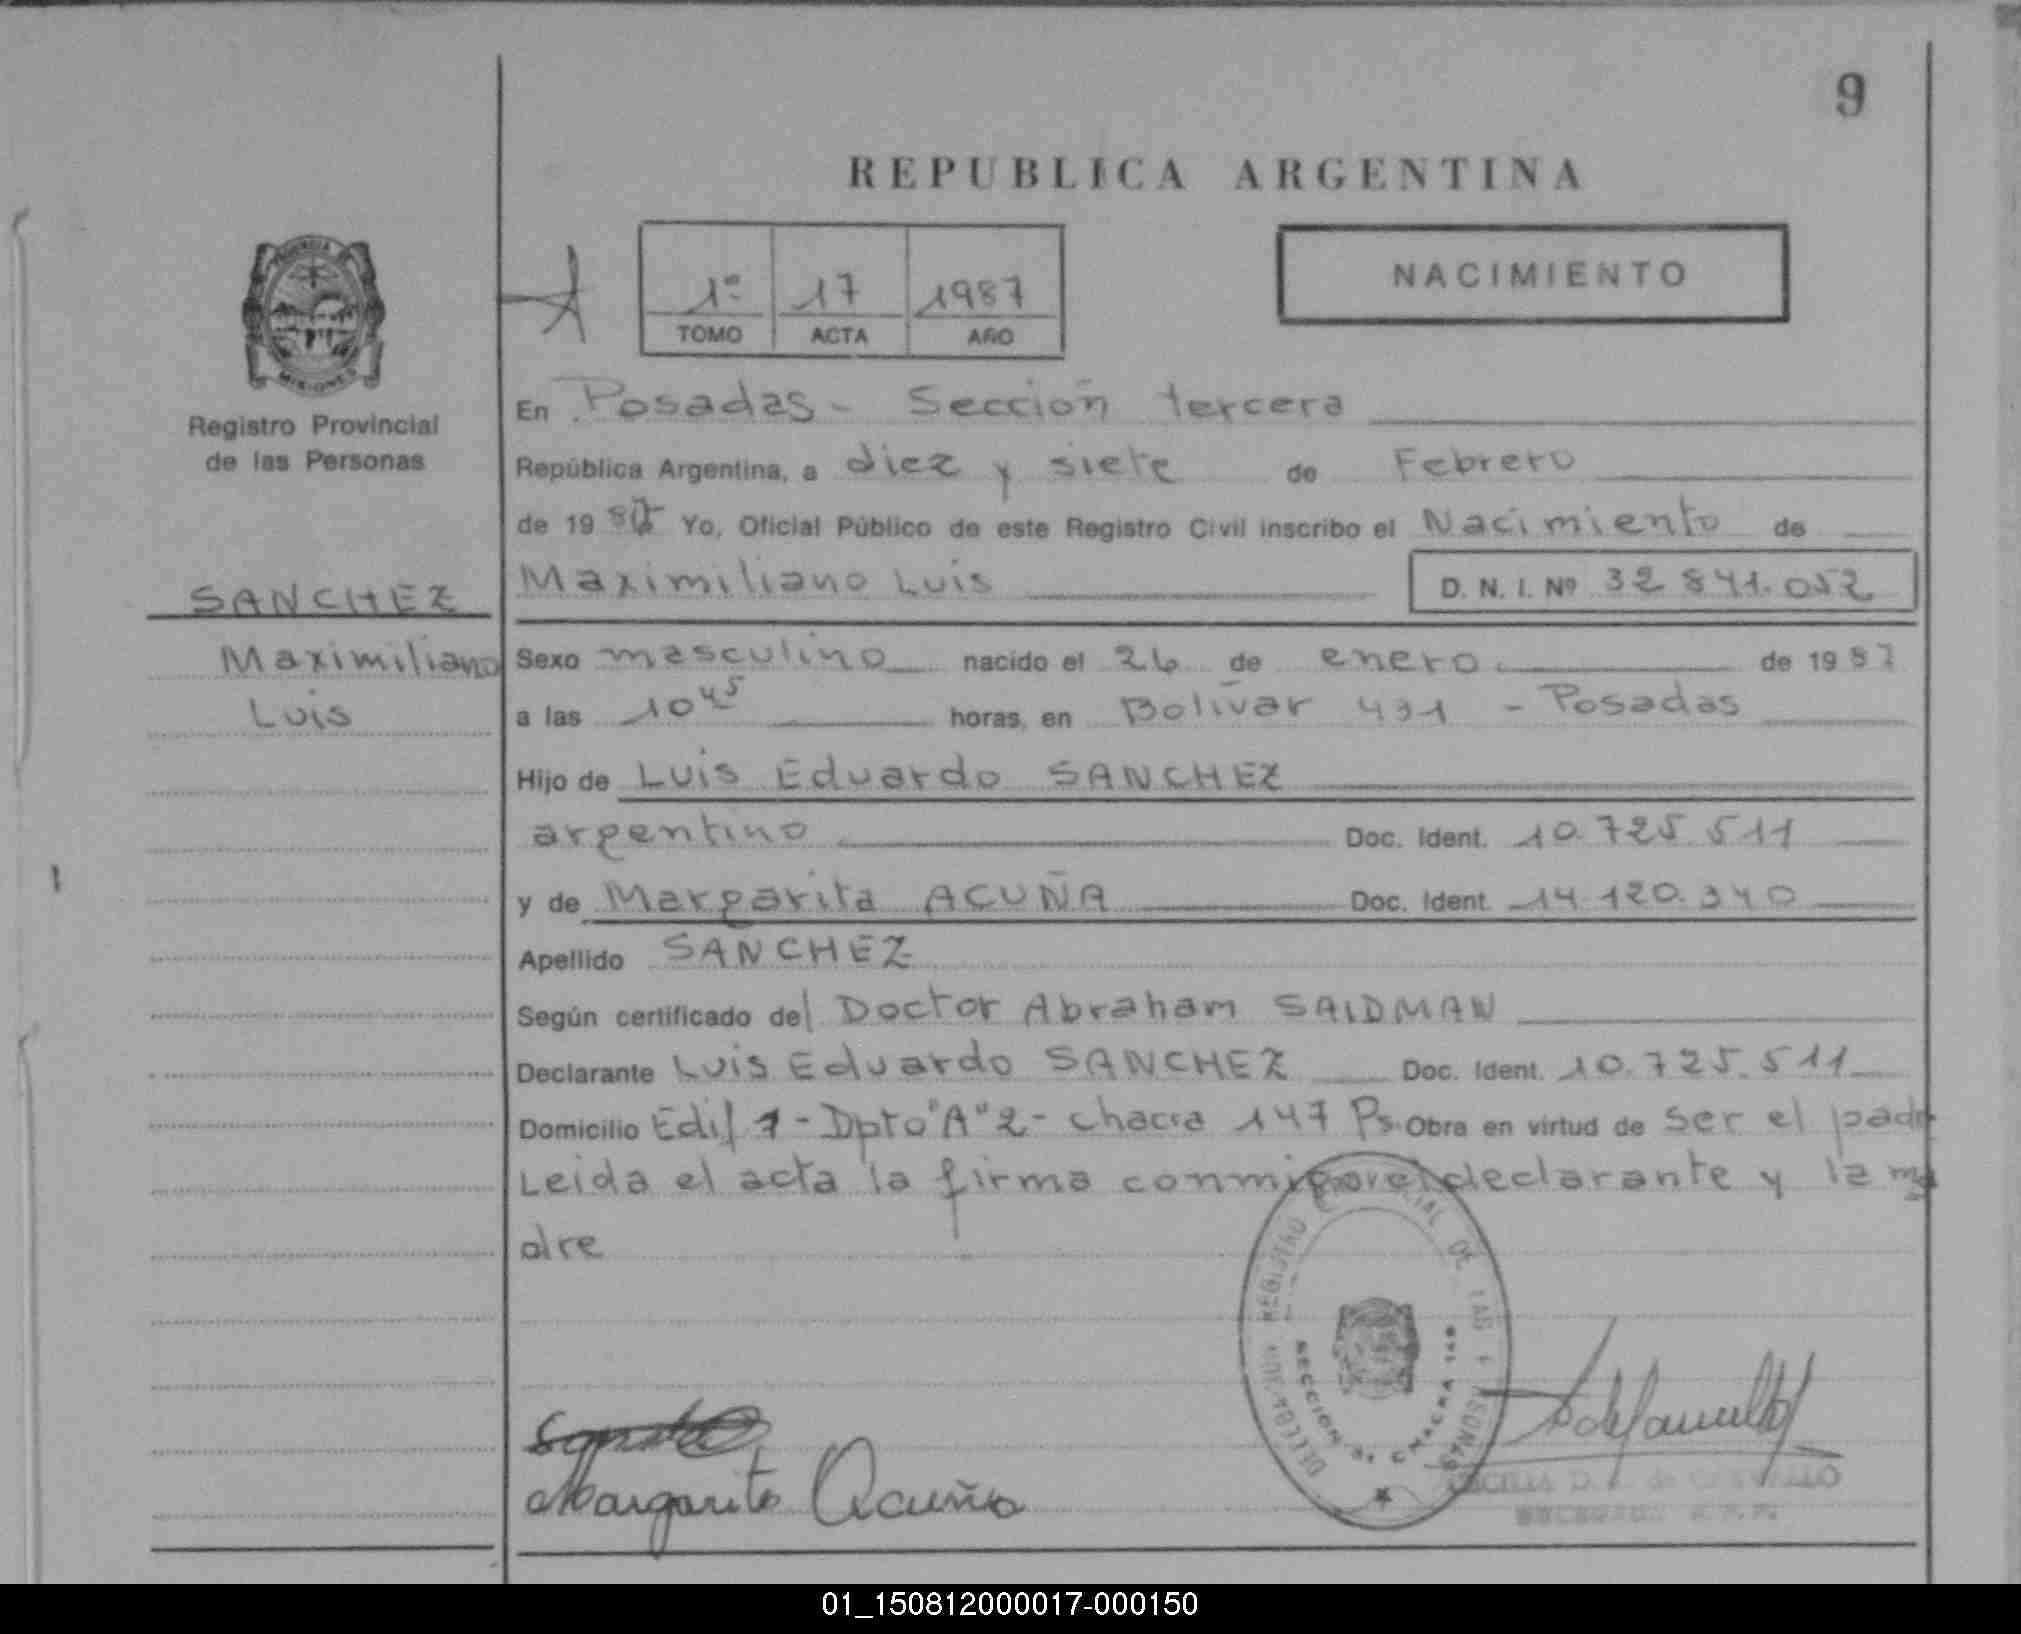 9
REPUBLICA ARGENTINA
1º 17 1987
TOMO ACTA AÑO
NACIMIENTO
PROVINCIA
MISIONES
Registro Provincial
de las Personas
SANCHEZ
Maximiliano
Luis
En Posadas - Sección tercera
República Argentina, a diez y siete de Febrero
de 19 87 Yo, Oficial Público de este Registro Civil inscribo el Nacimiento de
Maximiliano Luis D. N. I. Nº 32 841.052
Sexo masculino nacido el 26 de enero de 19 87
a las 10 45 horas, en Bolívar 431 - Posadas
Hijo de Luis Eduardo SANCHEZ
argentino Doc. Ident. 10.725.511
y de Margarita ACUÑA Doc. Ident. 14.120.340
Apellido SANCHEZ
Según certificado del Doctor Abraham SAIDMAN
Declarante Luis Eduardo SANCHEZ Doc. Ident. 10.725.511
Domicilio Edif 7 - Dpto "A" 2 - chacra 147 Ps. Obra en virtud de ser el padre
Leida el acta la firma conmigo el declarante y la ma
dre
REGISTRO PROVINCIAL DE LAS PERSONAS
SECCION 3ª CHACRA 149
Margarita Acuña
CECILIA D. de CARVALLO
01_150812000017-000150